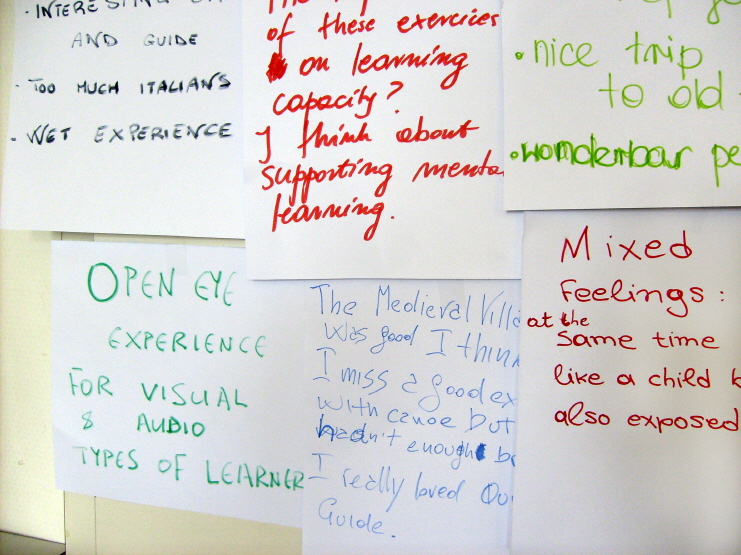 · INTERESTING
AND GUIDE
· TOO MUCH ITALIANS
· WET EXPERIENCE
of these exercises
on learning
capacity?
I think about
supporting
learning.
· nice trip
to old
· wonderbar
OPEN EYE
EXPERIENCE
FOR VISUAL
& AUDIO
TYPES OF LEARNER
The Medieval
was good I
I miss a good
with canoe but
hadn't enough
I really loved
Guide.
Mixed
Feelings:
at the
same time
like a child
also exposed